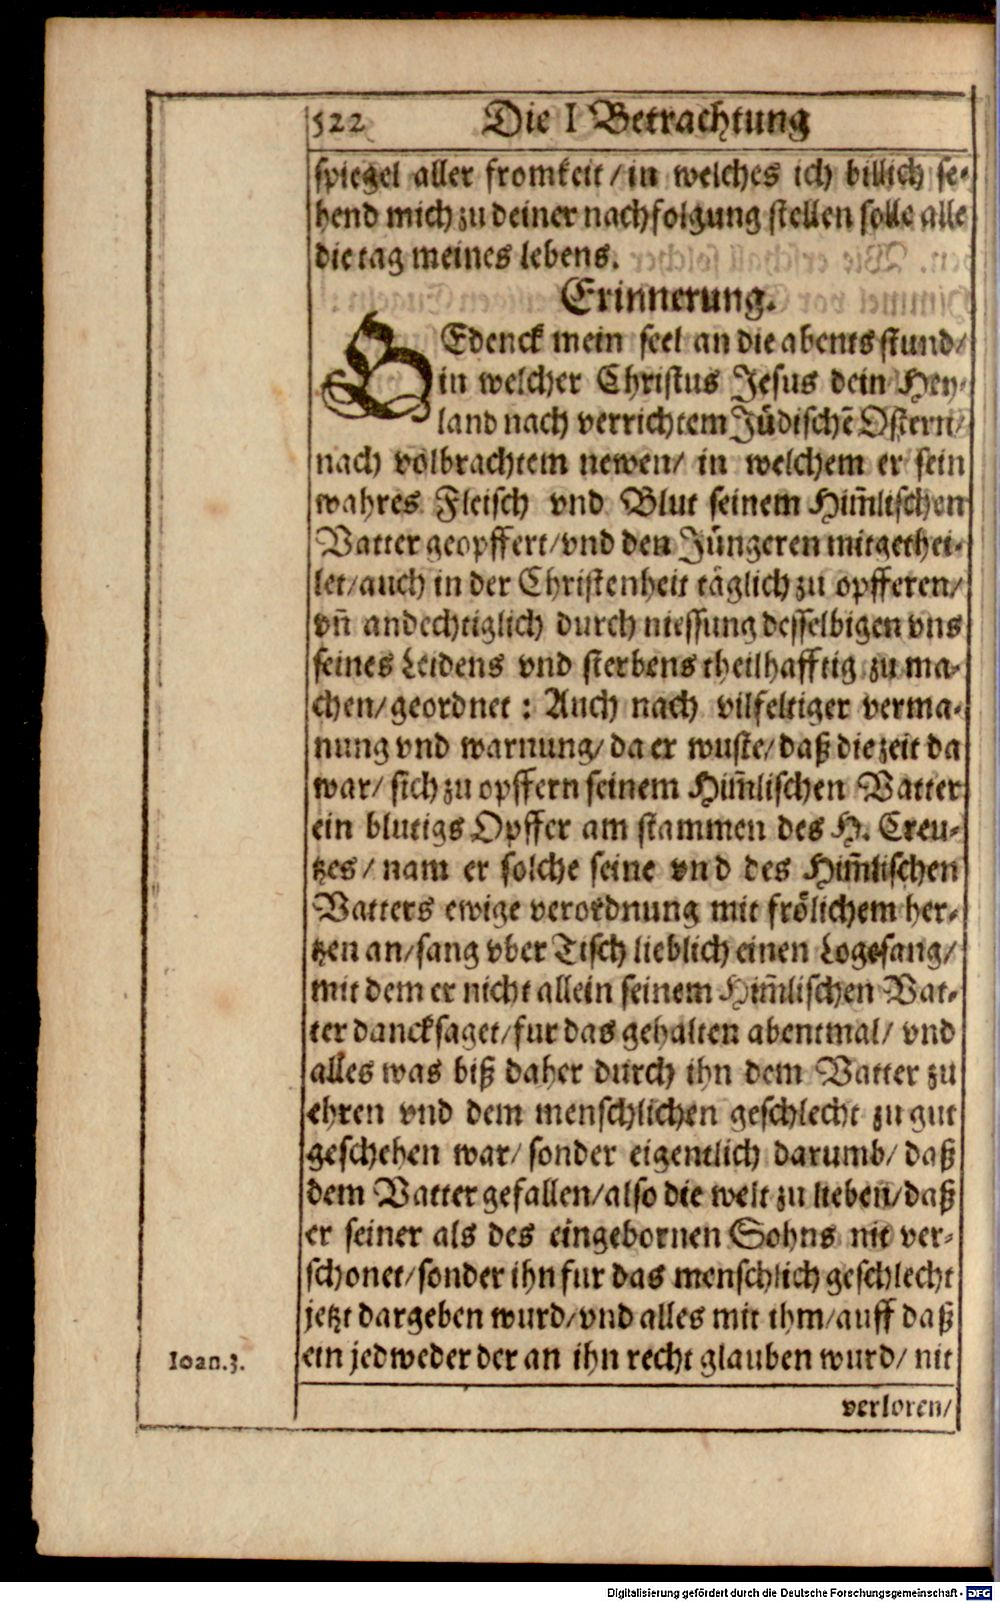 522 Die I Betrachtung
spiegel aller fromkeit/in welches ich billich se-
hend mich zu deiner nachfolgung stellen solle alle
die tag meines lebens.
Erinnerung.
GEdenck mein seel an die abents stund/
in welcher Christus Jesus dein Hey-
land nach verrichtem Jüdischē Ostern/
nach volbrachtem newen/ in welchem er sein
wahres Fleisch vnd Blut seinem Him̄lischen
Vatter geopffert/vnd den Jüngeren mitgethei-
let/auch in der Christenheit täglich zu opfferen/
vn̄ andechtiglich durch niessung desselbigen vns
seines Leidens vnd sterbens theilhafftig zu ma-
chen/geordnet : Auch nach vilfeltiger verma-
nung vnd warnung/da er wuste/daß die zeit da
war/ sich zu opffern seinem Him̄lischen Vatter
ein blutigs Opffer am stammen des H. Creu-
tzes/ nam er solche seine vnd des Him̄lischen
Vatters ewige verordnung mit frölichem her-
tzen an/sang vber Tisch lieblich einen Logesang/
mit dem er nicht allein seinem Him̄lischen Vat-
ter dancksaget/fur das gehalten abentmal/ vnd
alles was biß daher durch ihn dem Vatter zu
ehren vnd dem menschlichen geschlecht zu gut
geschehen war/ sonder eigentlich darumb/ daß
dem Vatter gefallen/also die welt zu lieben/daß
er seiner als des eingebornen Sohns nit ver-
schonet/sonder ihn fur das menschlich geschlecht
jetzt dargeben wurd/vnd alles mit ihm/auff daß
Ioan.3. ein jedweder der an ihn recht glauben wurd/ nit
verloren/
Digitalisierung gefördert durch die Deutsche Forschungsgemeinschaft - DFG